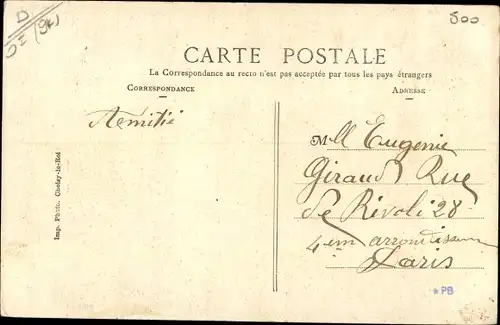 D
DE (94)
500
CARTE POSTALE
La Correspondance au recto n'est pas acceptée par tous les pays étrangers
CORRESPONDANCE
ADRESSE
Amitié
Mlle Eugenie
Giraud Rue
de Rivoli 28
4em arrondissem
Paris
Imp. Photo. Choisy-le-Roi
*PB